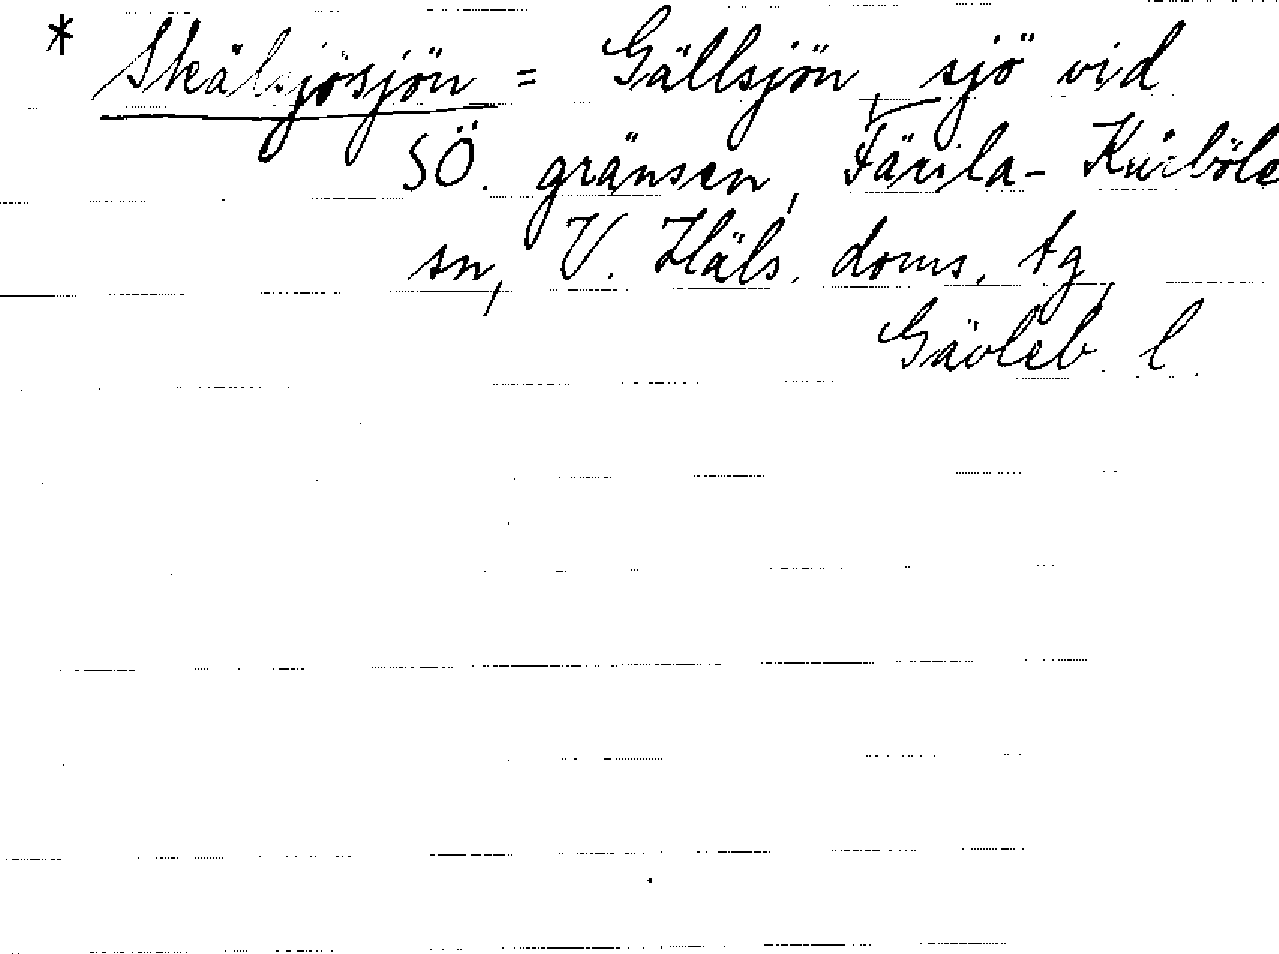 * Skälsjösjön = Gällsjön, sjö vid
SÖ. gränsen, Färila-Kårböle
sn, V. Häls. doms. tg,
Gävleb. l.